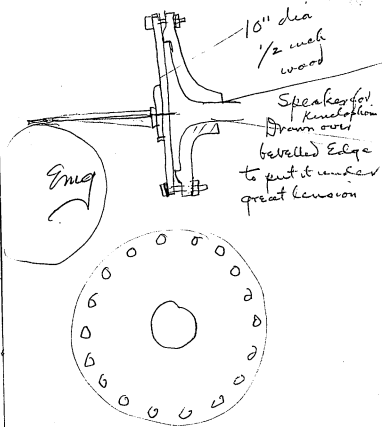 10" dia
1/2 inch
wood
Speaker for
Kinetophone
Drawn over
bevelled Edge
to put it under
great tension